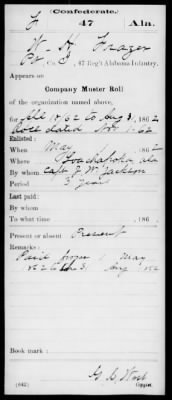 Confederate.
F 47 Ala.
W. H. Frazer
Pvt., Co. F, 47 Reg't Alabama Infantry.
Appears on
Company Muster Roll
of the organization named above,
for 1862 to Aug 31, 1862
dated Nov 1. 62
Enlisted:
When May 1, 1862
Where Loachapoka, Ala
By whom Capt J. W. Jackson
Period 3 years
Last paid:
By whom
To what time , 186
Present or absent Present
Remarks:
Paid from 1 May
1862 to the 31 Aug 1862
Book mark:
(642) Copyist.